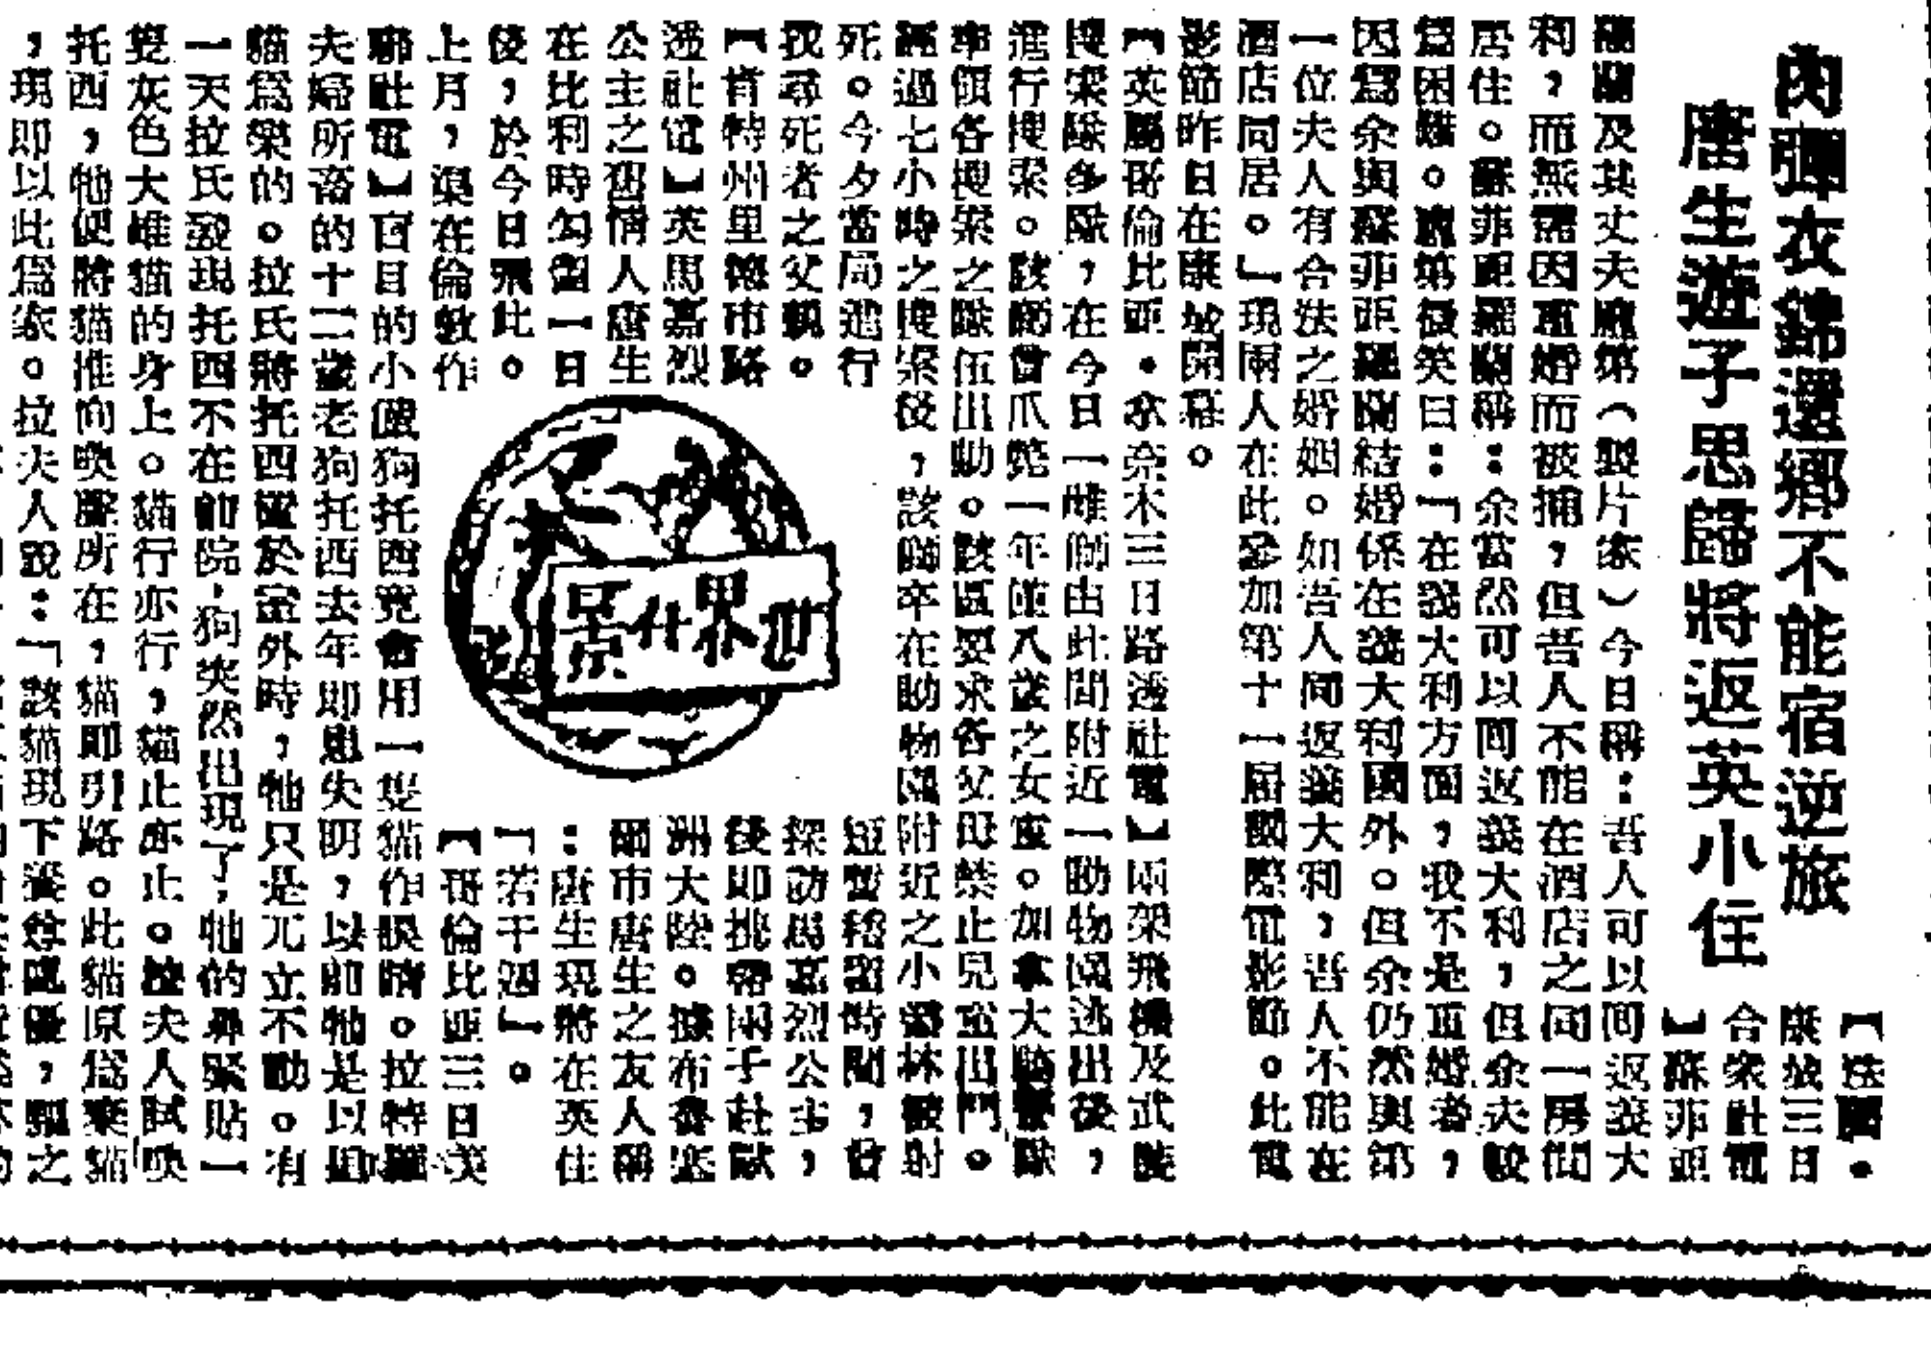 肉彈衣錦還鄉不能宿逆旅
唐生遊子思歸將返英小住
【法國·
康城三日
合衆社電
】蘇菲亞
羅蘭及其丈夫龐第（製片家）今日稱：吾人可以同返義大
利，而無需因重婚而被捕，但吾人不能在酒店之同一房間
居住。蘇菲亞羅蘭稱：余當然可以同返義大利，但余夫較
爲困難。龐第微笑曰：「在義大利方面，我不是重婚者，
因爲余與蘇菲亞羅蘭結婚係在義大利國外。但余仍然與第
一位夫人有合法之婚姻。如吾人同返義大利，吾人不能在
酒店同居。」現兩人在此參加第十一屆國際電影節。此電
影節昨日在康城開幕。
【英屬哥倫比亞·奈木三日路透社電】兩架飛機及武裝
搜索隊多隊，在今日一雌獅由此間附近一動物園逃出後，
進行搜索。該獅曾爪斃一年僅八歲之女童。加拿大騎警隊
率領各搜索之隊伍出動。該區要求各父母禁止兒童出門。
經過七小時之搜索後，該獅卒在動物園附近之小叢林被射
死。今夕當局進行
找尋死者之父親。
【肯特州里德市路
透社電】英馬嘉烈
公主之舊情人唐生
在比利時勾留一日
後，於今日飛此。
上月，渠在倫敦作
世界什景
短暫稽留時間，曾
探訪馬嘉烈公主，
後即挑帶兩子赴歐
洲大陸。據布魯塞
爾市唐生之友人稱
：唐生現將在英住
「若干週」。
【哥倫比亞三日美
聯社電】盲目的小獵狗托西竟會用一隻貓作眼睛。拉特羅
夫婦所畜的十二歲老狗托西去年即患失明，以前牠是以追
貓爲樂的。拉氏將托西置於室外時，牠只是兀立不動。有
一天拉氏發現托西不在前院，狗突然出現了，牠的鼻緊貼一
隻灰色大雌貓的身上。貓行亦行，貓止亦止。拉夫人試喚
托西，牠便將貓推向喚聲所在，貓即引路。此貓原爲棄貓
，現即以此爲家。拉夫人說：「該貓現下養尊處優，驅之